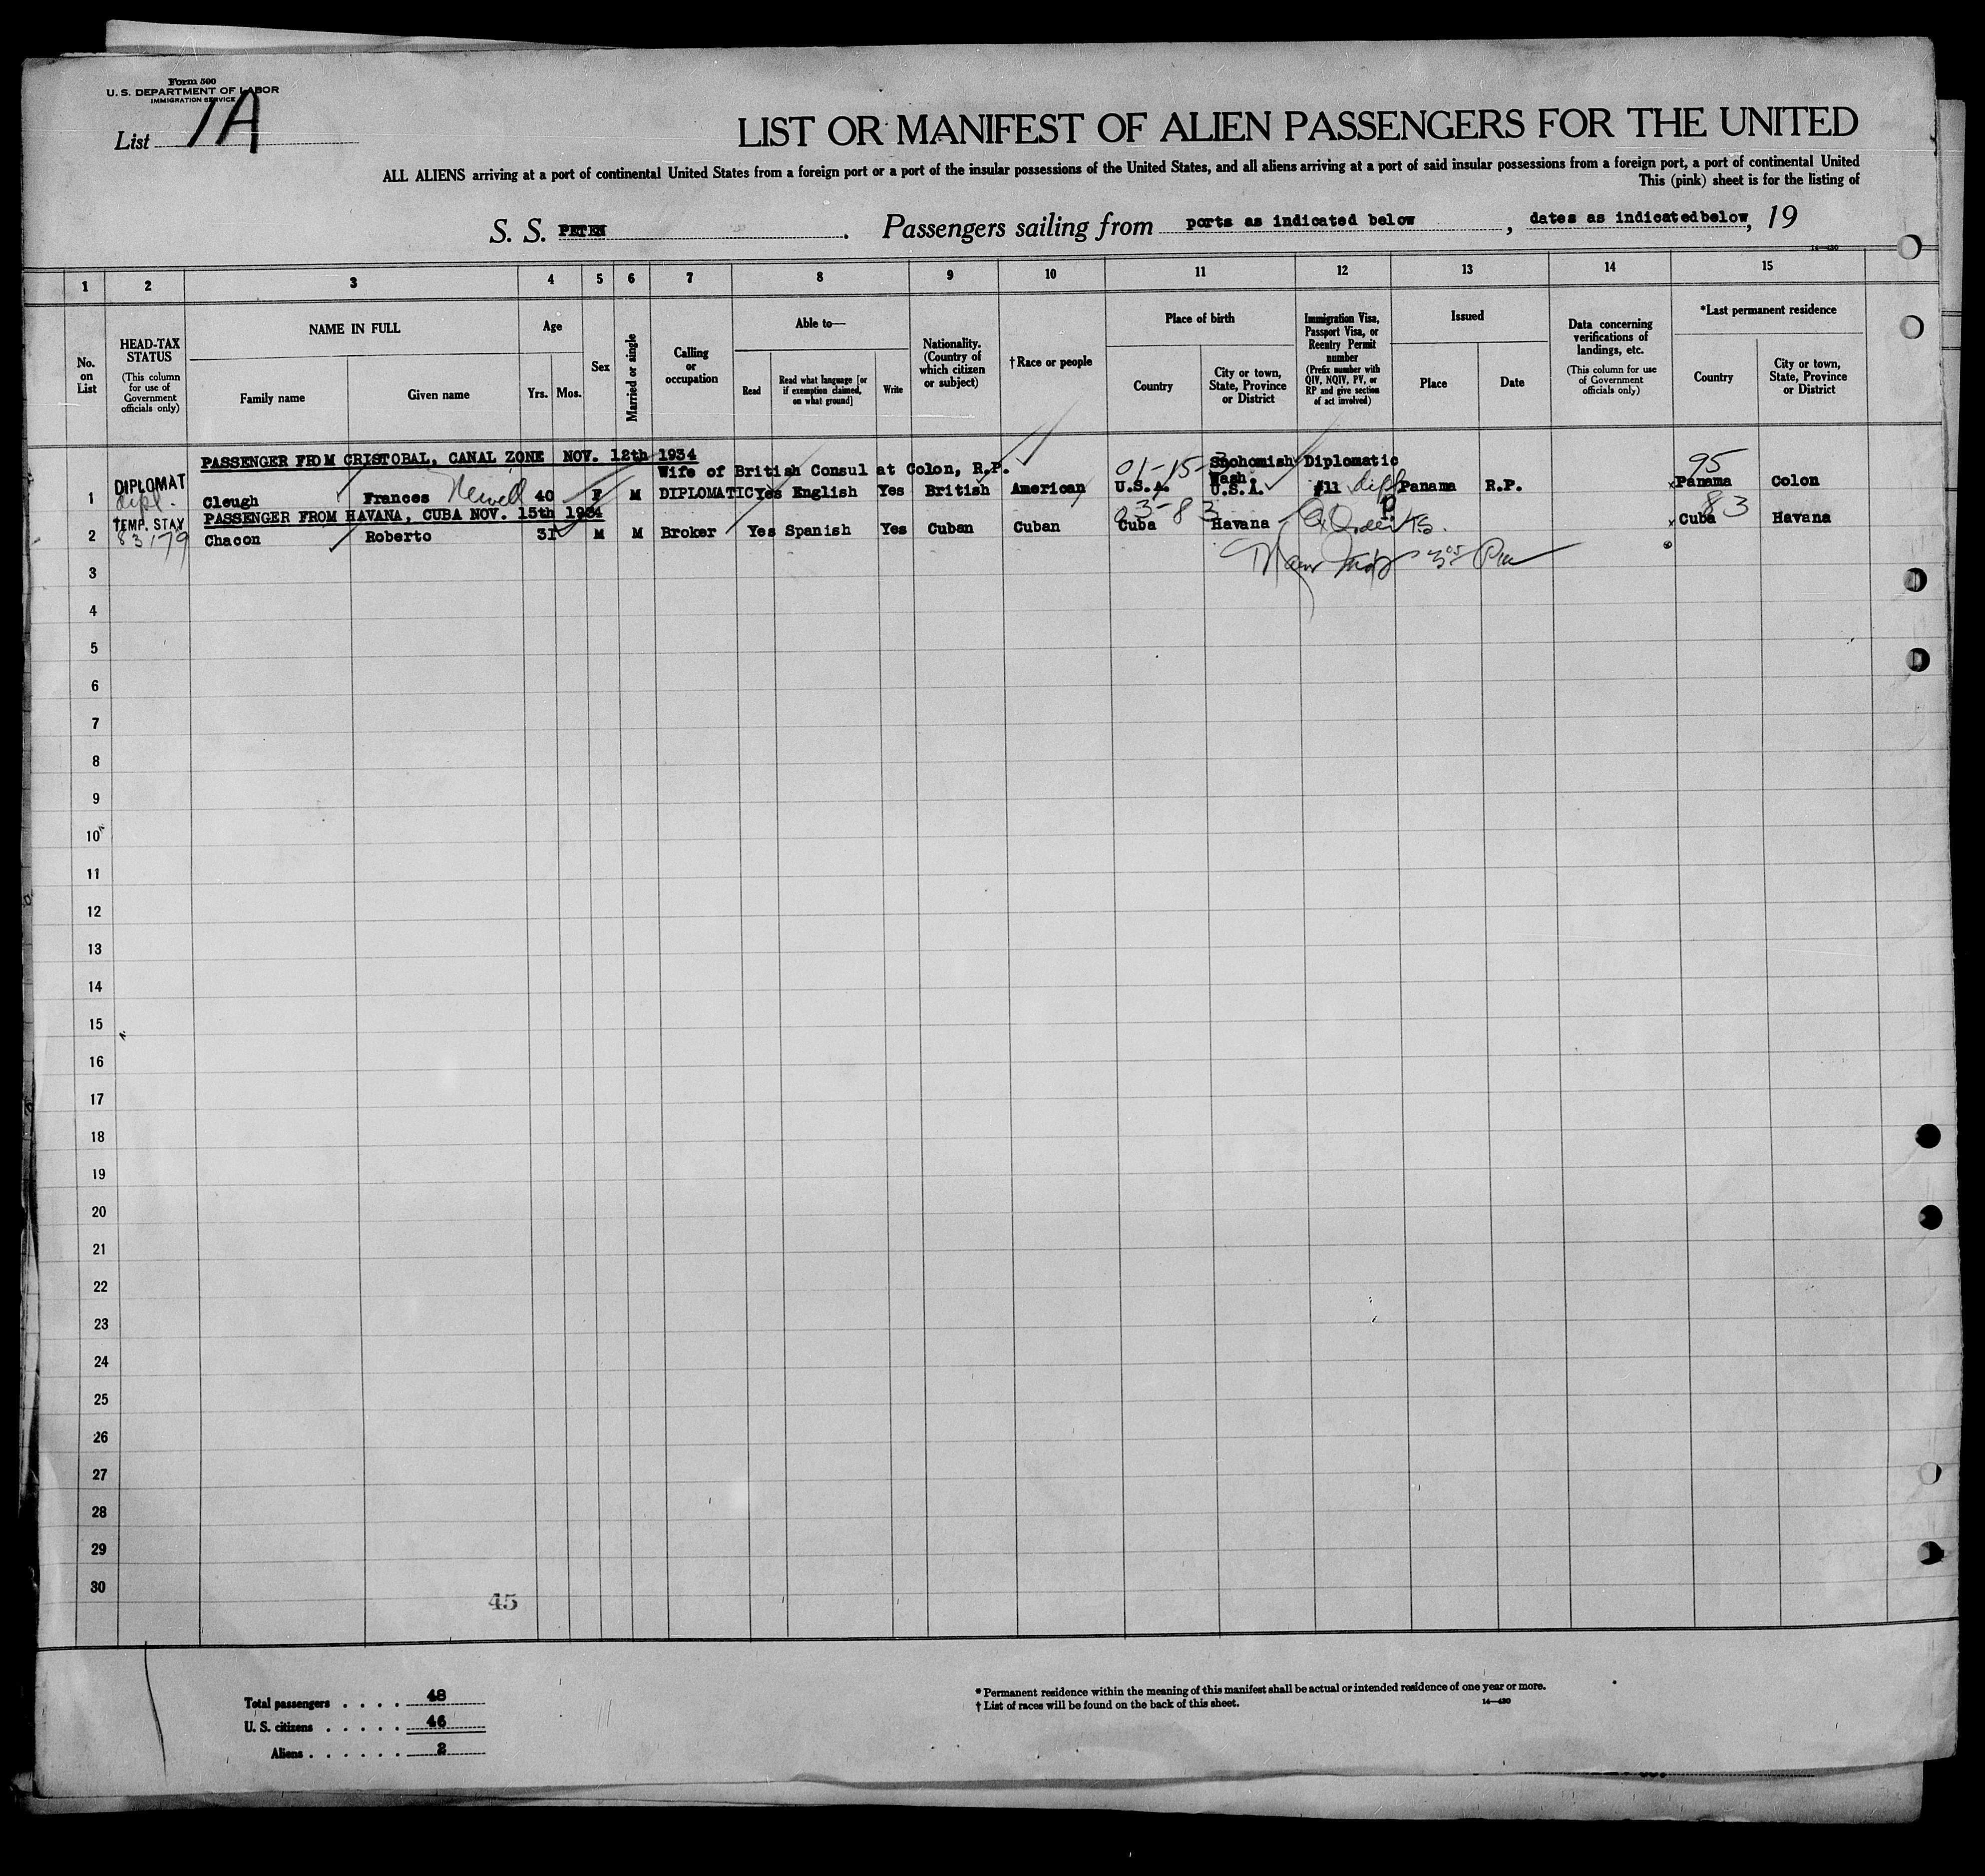 Form 500
U. S. DEPARTMENT OF LABOR
IMMIGRATION SERVICE
List 1A
LIST OR MANIFEST OF ALIEN PASSENGERS FOR THE UNITED
ALL ALIENS arriving at a port of continental United States from a foreign port or a port of the insular possessions of the United States, and all aliens arriving at a port of said insular possessions from a foreign port, a port of continental United
This (pink) sheet is for the listing of
S. S. PETEN . Passengers sailing from ports as indicated below , dates as indicatedbelow, 19
14—430
1 2 3 4 5 6 7 8 9 10 11 12 13 14 15
No. on List
HEAD-TAX STATUS
(This column for use of Government officials only)
NAME IN FULL
Family name
Given name
Age
Yrs. Mos.
Sex
Married or single
Calling or occupation
Able to—
Read
Read what language [or if exemption claimed, on what ground]
Write
Nationality. (Country of which citizen or subject)
† Race or people
Place of birth
Country
City or town, State, Province or District
Immigration Visa, Passport Visa, or Reentry Permit number
(Prefix number with QIV, NQIV, PV, or RP and give section of act involved)
Issued
Place
Date
Data concerning verifications of landings, etc.
(This column for use of Government officials only)
*Last permanent residence
Country
City or town, State, Province or District
PASSENGER FROM CRISTOBAL, CANAL ZONE NOV. 12th 1934
Wife of British Consul at Colon, R.P. 01-15-3 Snohomish Diplomatic 95
DIPLOMAT Wash.
1 dipl. Cleugh Frances Newell 40 F M DIPLOMATIC Yes English Yes British American U.S.A. U.S.A. #11 dipl Panama R.P. x Panama Colon
PASSENGER FROM HAVANA, CUBA NOV. 15th 1934 03-83 P. 83
TEMP. STAY
2 83179 Chacon Roberto 31 M M Broker Yes Spanish Yes Cuban Cuban Cuba Havana x Cuba Havana
3
4
5
6
7
8
9
10
11
12
13
14
15
16
17
18
19
20
21
22
23
24
25
26
27
28
29
30
45
Total passengers . . . . 48
U. S. citizens . . . . . 46
Aliens . . . . . . 2
* Permanent residence within the meaning of this manifest shall be actual or intended residence of one year or more.
† List of races will be found on the back of this sheet.
14—430